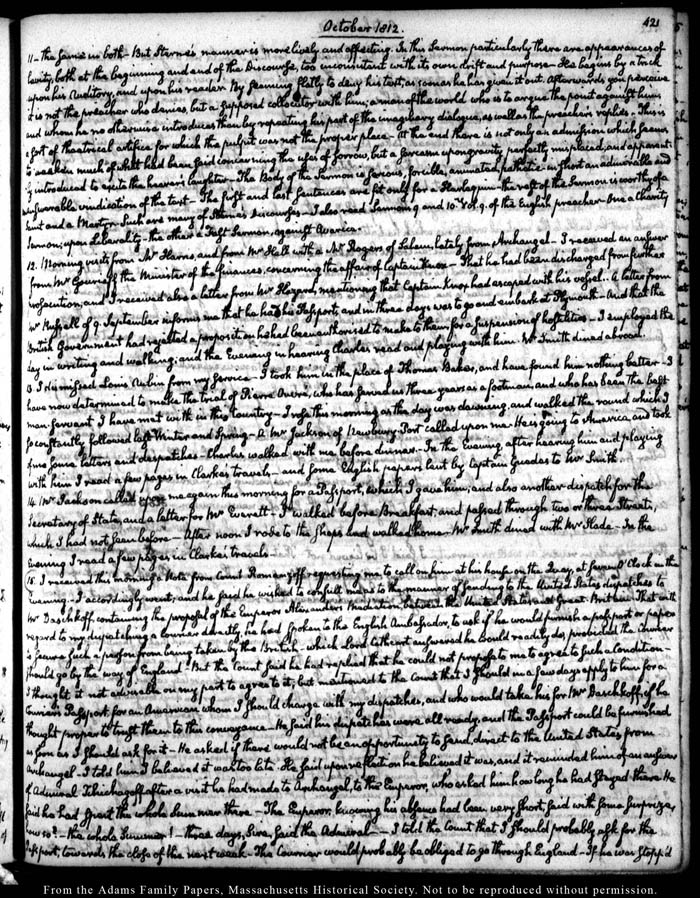 October 1812.
421
11 — the same in both — But Sterne's manner is more lively and affecting. In this Sermon particularly there are appearances of
levity, both at the beginning and end of the Discourse, too inconsistent with its own drift and purpose — He begins by a trick
upon his Auditory, and upon his reader. By seeming flatly to deny his text, as soon as he has given it out. Afterwards you perceive
it is not the preacher who denies, but a supposed collocutor with him; a man of the world who is to argue the point against him
and whom he no otherwise introduces than by repeating his part of the imaginary dialogue, as well as the preacher's replies. This is
a sort of theatrical artifice for which the pulpit was not the proper place. At the end there is not only an admission which seems
to weaken much of what had been said concerning the uses of sorrow, but a sarcasm upon gravity perfectly misplaced, and apparent-
ly introduced to excite the hearer's laughter — The Body of the Sermon is serious, forcible, animated, pathetic — in short an admirable and
unanswerable vindication of the text — The first and last sentences are fit only for a Harlequin — the rest of the Sermon is worthy of a
Saint and a Martyr. Such are many of Sterne's Discourses — I also read Sermons 9 and 10. Vol. 9. of the English preacher. One a Charity
Sermon, upon Liberality — the other a Fast Sermon, against Avarice.
12. Morning visits from Mr Harris, and from Mr Hall with a Mr Rogers of Salem, lately from Archangel — I received an answer
from Mr Gourieff the Minister of the finances, concerning the affair of Captain Knox — That he had been discharged from further
prosecution; and I received also a letter from Mr Hazard, mentioning that Captain Knox had escaped with his vessel. A letter from
Mr Russell of 9. September informs me that he has his Passports, and in three days was to go and embark at Plymouth — And that the
British Government had rejected a proposition he had been authorised to make to them for a suspension of hostilities — I employed the
day in writing and walking; and the Evening in hearing Charles read and playing with him. Mr Smith dined abroad.
3. I dismissed Louis Aubin from my service — I took him in the place of Thomas Baker, and have found him nothing better — I
have now determined to make the trial of Pierre who has served us three years as a footman, and who has been the best
man servant I have met with in this Country — I rose this morning as the day was dawning, and walked the round which I
so constantly followed last Winter and Spring — A Mr Jackson of Newbury Port called upon me. He is going to America, and took
some letters and despatches — Charles walked with me before dinner. In the Evening after hearing him and playing
with him I read a few pages in Clarke's travels — and some English papers lent by Captain to Mr Smith.
14. Mr Jackson called upon me again this morning for a Passport, which I gave him; and also another dispatch for the
Secretary of State, and a letter for Mr Everett — I walked before Breakfast, and passed through two or three streets,
which I had not seen before — After noon I rode to the Shops and walked home — Mr Smith dined with Mr Slade — In the
Evening I read a few pages in Clarke's travels.
15. I received this morning a Note from Count Romanzoff requesting me to call on him at his house on the Quay, at seven O'Clock in the
Evening — I accordingly went; and he said he wished to consult me as to the manner of sending to the United States dispatches to
Mr Daschkoff, containing the proposal of the Emperor Alexander's Mediation, between the United States and Great Britain. That with
regard to my dispatching a Courier directly, he had spoken to the English Ambassador, to ask if he would furnish a passport or paper
to secure such a person from being taken by the British — which Lord Cathcart answered he would readily do, provided the Courier
should go by the way of England. But the Count said he had replied that he could not propose to me to agree to such a condition —
I thought it not advisable on my part to agree to it; but mentioned to the Count that I should in a few days apply to him for a
Courier's Passport, for an American whom I should charge with my dispatches, and who would take his for Mr Daschkoff, if he
thought proper to trust them to this conveyance — He said his dispatches were all ready, and the Passport could be furnished
as soon as I should ask for it — He asked if there would not be an opportunity to send, direct to the United States from
Archangel — I told him I believed it was too late. He said upon reflection he believed it was, and it reminded him of an answer
of Admiral Tchichagoff after a visit he had made to Archangel, to the Emperor, who asked him how long he had stayed there. He
said he had spent the whole Summer there. The Emperor, knowing his absence had been very short, said with some surprize,
how so? — the whole Summer! — three days, Sire, said the Admiral — I told the Count that I should probably ask for the
Passport, towards the close of the next week — The Courier would probably be obliged to go through England — If he was stopp'd
From the Adams Family Papers, Massachusetts Historical Society. Not to be reproduced without permission.